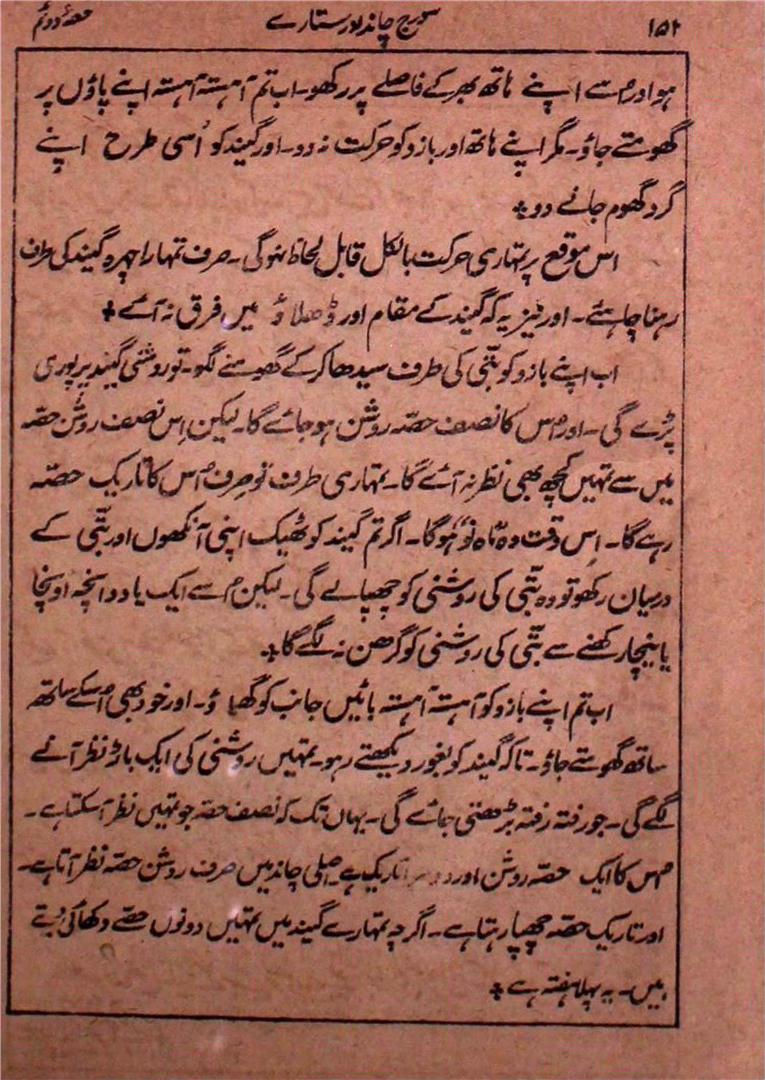 ۱۵۲ سورج چاند اور ستارے حصۂ دوئم
ہو اور اُسے اپنے ہاتھ بھر کے فاصلے پر رکھو۔ اب تم آہستہ آہستہ اپنے پاؤں پر
گھومتے جاؤ۔ مگر اپنے ہاتھ اور بازو کو حرکت نہ دو۔ اور گیند کو اُسی طرح اپنے
گرد گھوم جانے دو۔
اس موقع پر تمہاری حرکت بالکل قابل لحاظ نہ ہوگی۔ صرف تمہارا چہرہ گیند کی طرف
رہنا چاہئے۔ اور نیز یہ کہ گیند کے مقام اور ڈھلاؤ میں فرق نہ آئے۔
اب اپنے بازو کو بتّی کی طرف سیدھا کر کے گھومنے لگو۔ تو روشنی گیند پر پوری
پڑے گی۔ اور اُس کا نصف حصّہ روشن ہو جائے گا۔ لیکن اِس نصف روشن حصّہ
میں سے تمہیں کچھ بھی نظر نہ آئے گا۔ تمہاری طرف تو صرف اُس کا تاریک حصّہ
رہے گا۔ اِس وقت وہ ماہ نَو ہوگا۔ اگر تم گیند کو ٹھیک اپنی آنکھوں اور بتّی کے
درمیان رکھو تو وہ بتّی کی روشنی کو چھپا لے گی۔ لیکن اُسے ایک یا دو انچہ اونچا
یا نیچا رکھنے سے بتّی کی روشنی کو گرھن نہ لگے گا۔
اب تم اپنے بازو کو آہستہ آہستہ بائیں جانب کو گھماؤ۔ اور خود بھی اُسکے ساتھ
ساتھ گھومتے جاؤ۔ تاکہ گیند کو بغور دیکھتے رہو۔ تمہیں روشنی کی ایک باڑ نظر آنے
لگے گی۔ جو رفتہ رفتہ بڑھتی جائے گی۔ یہاں تک کہ نصف حصّہ جو تمہیں نظر آسکتا ہے۔
اُس کا ایک حصّہ روشن اور دوسرا تاریک ہے۔ اصلی چاند میں صرف روشن حصّہ نظر آتا ہے۔
اور تاریک حصّہ چھپا رہتا ہے۔ اگرچہ تمہارے گیند میں تمہیں دونوں حصّے دکھائی دیتے
ہیں۔ یہ پہلا ہفتہ ہے۔